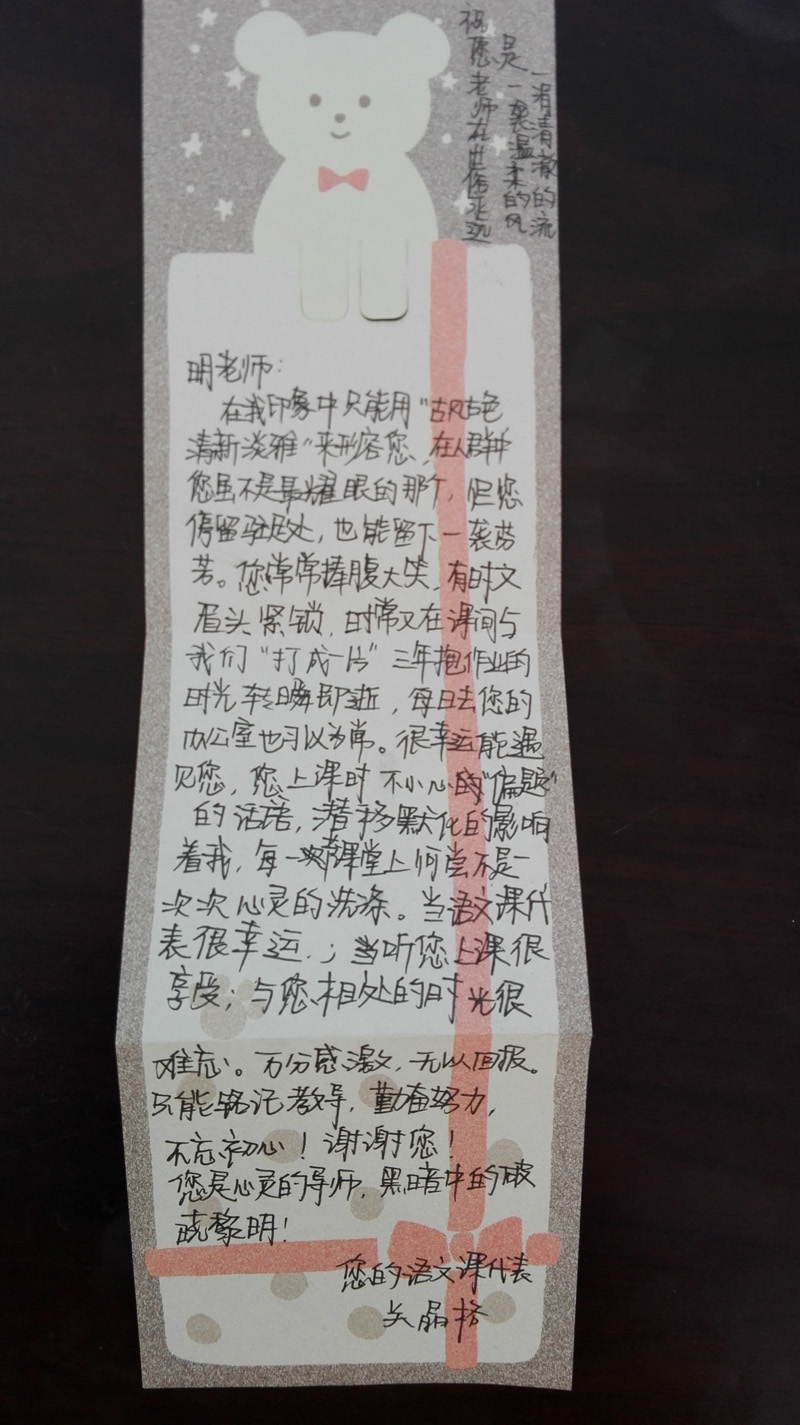 祝您老师在世俗永远
是一袭温柔的风
一有清澈的流
明老师：
在我印象中只能用“古风古色
清新淡雅”来形容您，在人群中
您虽不是最耀眼的那个，但您
停留驻足处，也能留下一袭芬
芳。您常常捧腹大笑，有时又
眉头紧锁，时常又在课间与
我们“打成一片”三年抱作业的
时光转瞬即逝，每日去您的
办公室也习以为常。很幸运能遇
见您，您上课时不小心的“偏题”
的话语，潜移默化的影响
着我，每一次课堂上何尝不是一
次次心灵的洗涤。当语文课代
表很幸运.；当听您上课很
享受；与您相处的时光很
难忘。万分感激，无以回报。
只能铭记教导，勤奋努力，
不忘初心！谢谢您！
您是心灵的导师，黑暗中的破
晓黎明！
您的语文课代表
关晶格